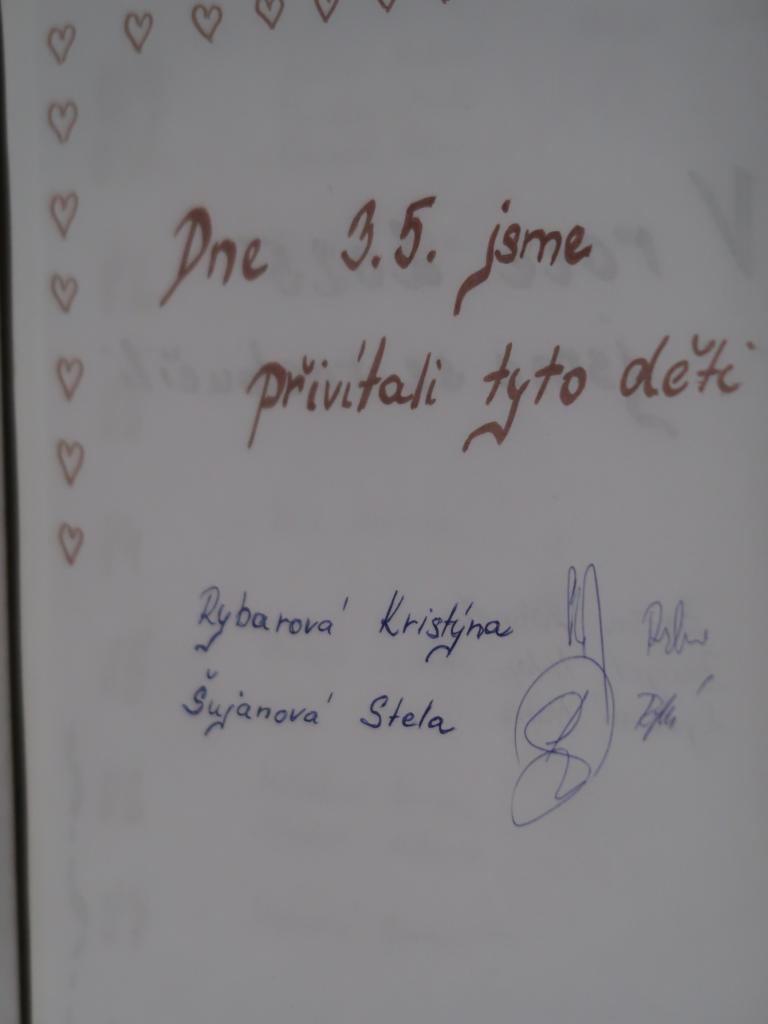 Dne 3.5. jsme
přivítali tyto děti
Rybarová Kristýna
Šujanová Stela